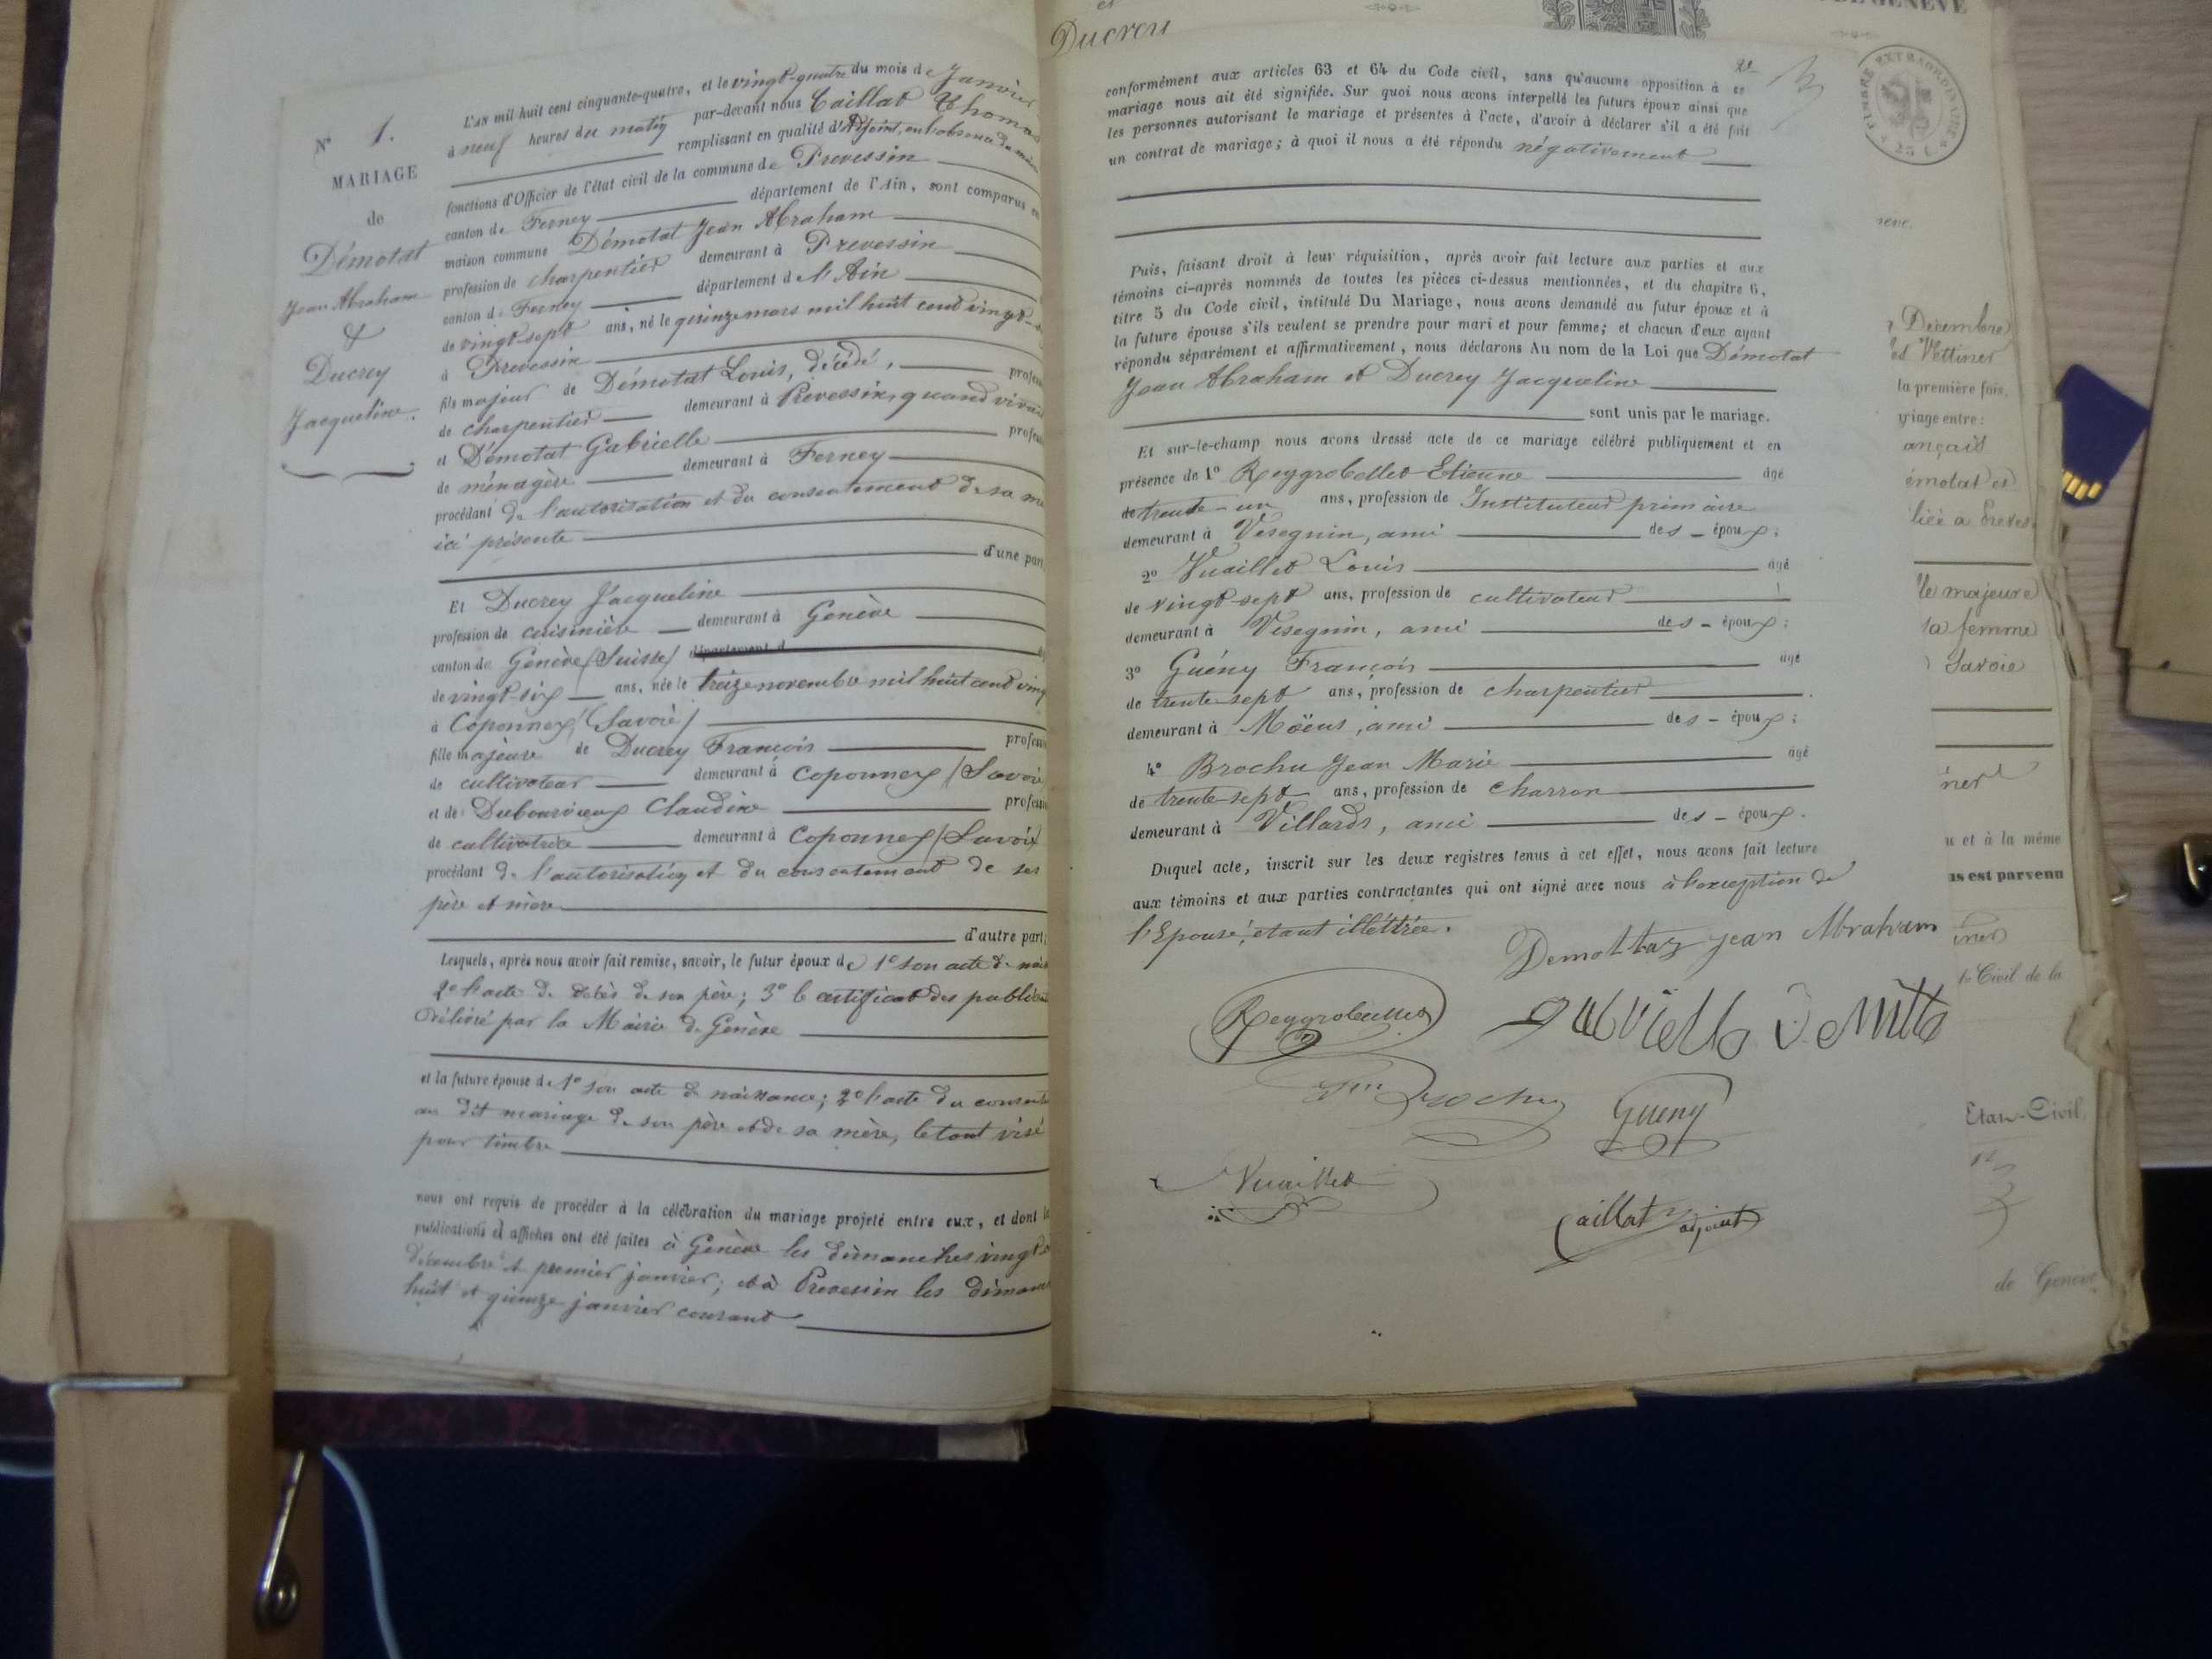 N° 1.
MARIAGE
de
Démotat
Jean Abraham
&
Ducrey
Jacqueline.
L'an mil huit cent cinquante-quatre, et le vingt-quatre du mois de Janvier
à neuf heures du matin par-devant nous Caillat Thomas
remplissant en qualité d'Adjoint, en l'absence du maire
fonctions d'Officier de l'état civil de la commune de Prevessin
canton de Ferney département de l'Ain, sont comparus en
maison commune Démotat Jean Abraham
profession de charpentier demeurant à Prevessin
canton de Ferney département de l'Ain
de vingt-sept ans, né le quinze mars mil huit cent vingt-
à Prevessin
fils majeur de Démotat Louis, décédé, profess
de charpentier demeurant à Prevessin, quand vivait
et Démotat Gabrielle profess
de ménagère demeurant à Ferney
procédant de l'autorisation et du consentement de sa mè
ici présente
d'une part
Et Ducrey Jacqueline
profession de cuisinière demeurant à Genève
canton de Genève (Suisse) département d
de vingt-six ans, née le treize novembre mil huit cent ving
à Coponnex (Savoie)
fille majeure de Ducrey François profess
de cultivateur demeurant à Coponnex (Savoie
et de Dubourvieux Claudine profess
de cultivatrice demeurant à Coponnex (Savoie)
procédant de l'autorisation et du consentement de ses
père et mère
d'autre part;
Lesquels, après nous avoir fait remise, savoir, le futur époux de 1° son acte de nais
2° l'acte de décès de son père; 3° le certificat des publica
délivré par la Mairie de Genève
et la future épouse de 1° son acte de naissance; 2° l'acte du consent
au dit mariage de son père et de sa mère, le tout visé
pour timbre
nous ont requis de procéder à la célébration du mariage projeté entre eux, et dont le
publications et affiches ont été faites à Genève les dimanches vingt
décembre et premier janvier; et à Prevessin les diman
huit et quinze janvier courant
et
Ducrey
DE GENÈVE
conformément aux articles 63 et 64 du Code civil, sans qu'aucune opposition à ce
mariage nous ait été signifiée. Sur quoi nous avons interpellé les futurs époux ainsi que
les personnes autorisant le mariage et présentes à l'acte, d'avoir à déclarer s'il a été fait
un contrat de mariage; à quoi il nous a été répondu négativement
Puis, faisant droit à leur réquisition, après avoir fait lecture aux parties et aux
témoins ci-après nommés de toutes les pièces ci-dessus mentionnées, et du chapitre 6,
titre 5 du Code civil, intitulé Du Mariage, nous avons demandé au futur époux et à
la future épouse s'ils veulent se prendre pour mari et pour femme; et chacun d'eux ayant
répondu séparément et affirmativement, nous déclarons Au nom de la Loi que Démotat
Jean Abraham et Ducrey Jacqueline
sont unis par le mariage.
Et sur-le-champ nous avons dressé acte de ce mariage célébré publiquement et en
présence de 1° Reygrobellet Etienne âgé
de trente-un ans, profession de Instituteur primaire
demeurant à Vesegnin, ami des époux;
2° Vuaillet Louis âgé
de vingt-sept ans, profession de cultivateur
demeurant à Vesegnin, ami des époux;
3° Guény François âgé
de trente-sept ans, profession de charpentier
demeurant à Moëns, ami des époux;
4° Brochu Jean Marie âgé
de trente-sept ans, profession de charron
demeurant à Villards, ami des époux.
Duquel acte, inscrit sur les deux registres tenus à cet effet, nous avons fait lecture
aux témoins et aux parties contractantes qui ont signé avec nous à l'exception de
l'Epouse, étant illéttrée.
Demottaz jean Abraham
Reygrobellet
Gueny
Vuaillet
Caillat adjoint
TIMBRE EXTRAORDINAIRE
25 C
Décembre
et Vettiner
la première fois,
riage entre:
ançais
émotat et
liée à Preves
le majeure
sa femme
Savoie
u et à la même
us est parvenu
Civil de la
Etat-Civil,
de Genève